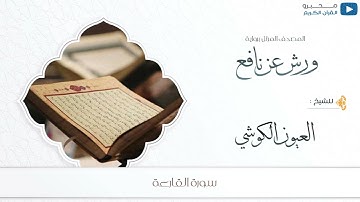 محبرو
القرآن الكريم
المصحف المرتل برواية
ورش عن نافع
للشيخ :
العيون الكوشي
سورة القارعة